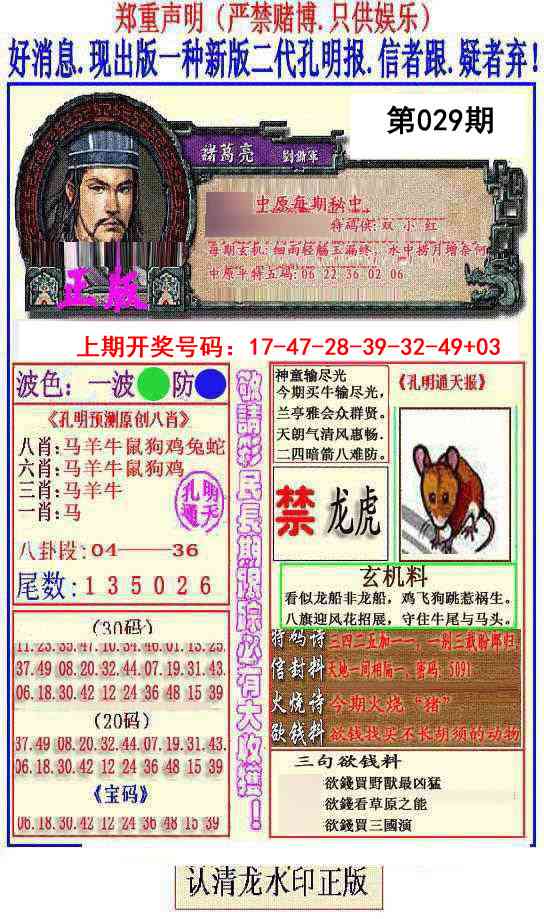 郑重声明（严禁赌博.只供娱乐）
好消息.现出版一种新版二代孔明报.信者跟.疑者弃！
第029期
諸葛亮
劉謝軍
中原每期秘中
特码供:双 小 红
每期玄机:细雨轻觞玉漏终，水中捞月增奈何
中原平特五码:06 22 36 02 06
正版
上期开奖号码：17-47-28-39-32-49+03
波色：一波 防
《孔明预测原创八肖》
八肖:马羊牛鼠狗鸡兔蛇
六肖:马羊牛鼠狗鸡
三肖:马羊牛
一肖:马
孔明
通天
八卦段:04——36
尾数:135026
（30码）
11.23.35.47.10.34.46.01.13.25.
37.49 08.20.32.44.07.19.31.43.
06.18.30.42 12 24 36 48 15 39
（20码）
37.49 08.20.32.44.07.19.31.43.
06.18.30.42 12 24 36 48 15 39
《宝码》
06.18.30.42 12 24 36 48 15 39
敬請彩民長期跟踪必有大收獲！
神童输尽光
今期买牛输尽光，
兰亭雅会众群贤。
天朗气清风惠畅.
二四暗箭八难防。
《孔明通天报》
禁 龙虎
玄机料
看似龙船非龙船，鸡飞狗跳惹祸生。
八旗迎风花招展，守住牛尾与马头。
特码诗 三四二五加一一，一别三载盼郎归
信封料 天地一间相隔一、密码：5091
火烧诗 今期火烧“猪”
欲钱料 欲钱找买不长胡须的动物
三句欲钱料
欲錢買野獸最凶猛
欲錢看草原之能
欲錢買三國演
认清龙水印正版